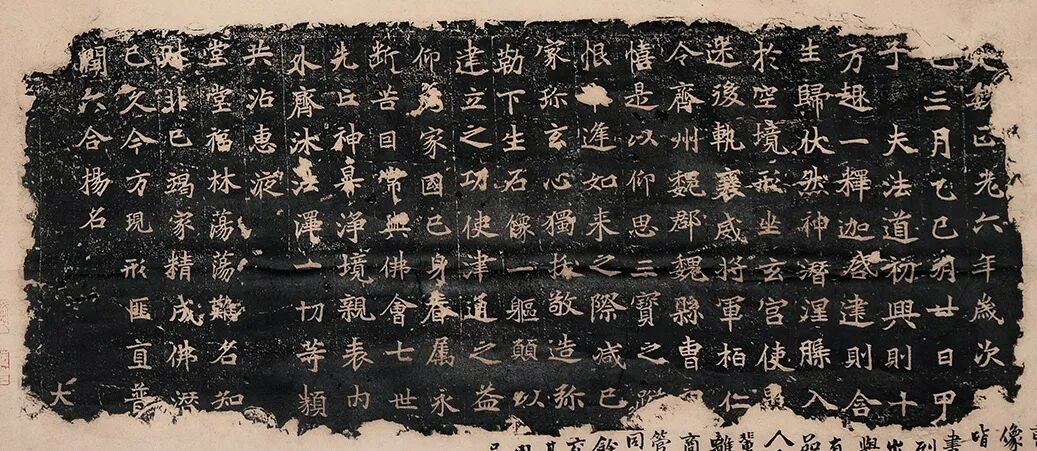 正光六年歲次
巳三月乙巳朔廿日甲
子夫法道初興則十
方趣一釋迦啟建則含
生歸伏然神潛涅槃入
於空境形坐玄宮使愚
迷後軌襄威將軍柏仁
令齊州魏郡魏縣曹
憘是以仰思三寶之
恨未逢如来之際减己
家珎玄心獨拔敬造弥
勒下生石像一軀願以
建立之功使津通之益
仰為家國己身眷属永
断苦因常與佛會七世
先亡神昇净境親表内
外齊沐法澤一切等類
共沾惠液
堂堂福林蕩蕩難名知
財非己竭家精成佛潛
已久今方現形匪直普
潤六合揚名
大